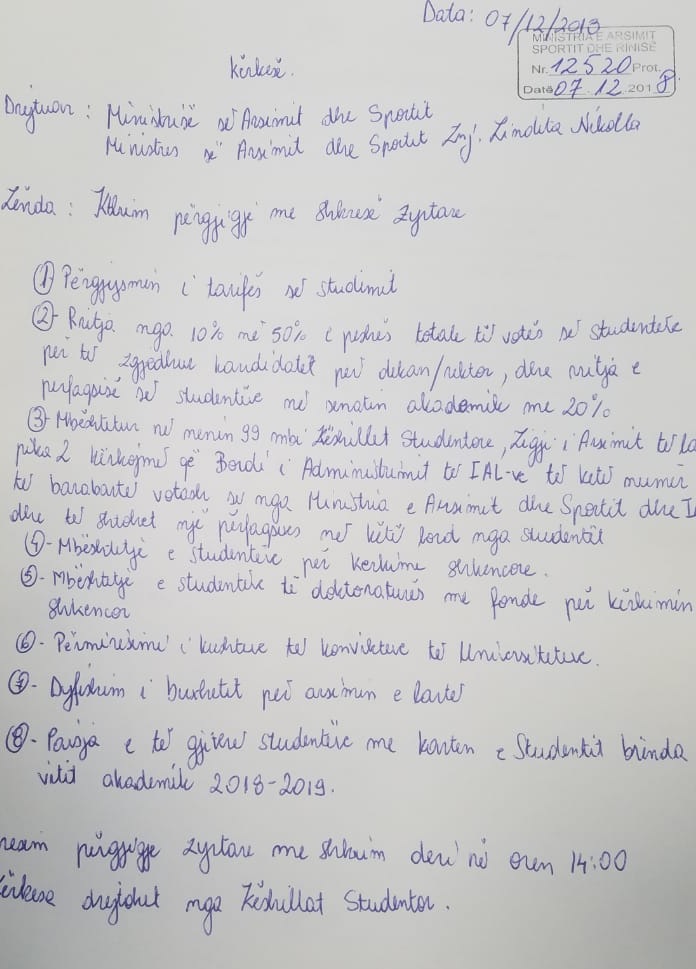 Data: 07/12/2018
MINISTRIA E ARSIMIT
SPORTIT DHE RINISË
Nr. 12520 Prot.
Datë 07.12.2018
Kërkesë.
Drejtuar: Ministrisë së Arsimit dhe Sportit
Ministres së Arsimit dhe Sportit Znj. Lindita Nikolla
Lënda: Kthim përgjigje me shkresë zyrtare
① Përgjysmim i tarifës së studimit
②- Rritja nga 10% në 50% e peshës totale të votës së studentëve
për të zgjedhur kandidatët për dekan/rektor, dhe rritja e
përfaqsisë së studentëve në senatin akademik me 20%
③- Mbështetur në nenin 99 mbi Këshillet Studentore, Ligji i Arsimit të La
pika 2 kërkojmë që Bordi i Administrimit të IAL-ve të ketë numër
të barabartë votash si nga Ministria e Arsimit dhe Sportit dhe I
dhe të shtohet një përfaqsues në këtë bord nga studentët
④- Mbështetje e studentëve për kerkime shkencore.
⑤- Mbështetje e studentëve të doktoraturës me fonde për kërkimin
shkencor
⑥- Përmirësimi i kushteve të konvikteve të Universiteteve.
⑦- Dyfishim i buxhetit për arsimin e lartë
⑧- Pajisja e të gjithë studentëve me kartën e Studentit brenda
vitit akademik 2018-2019.
resim përgjigje zyrtare me shkrim deri në oren 14:00
kërkese drejtohet nga Këshillat Studentor.